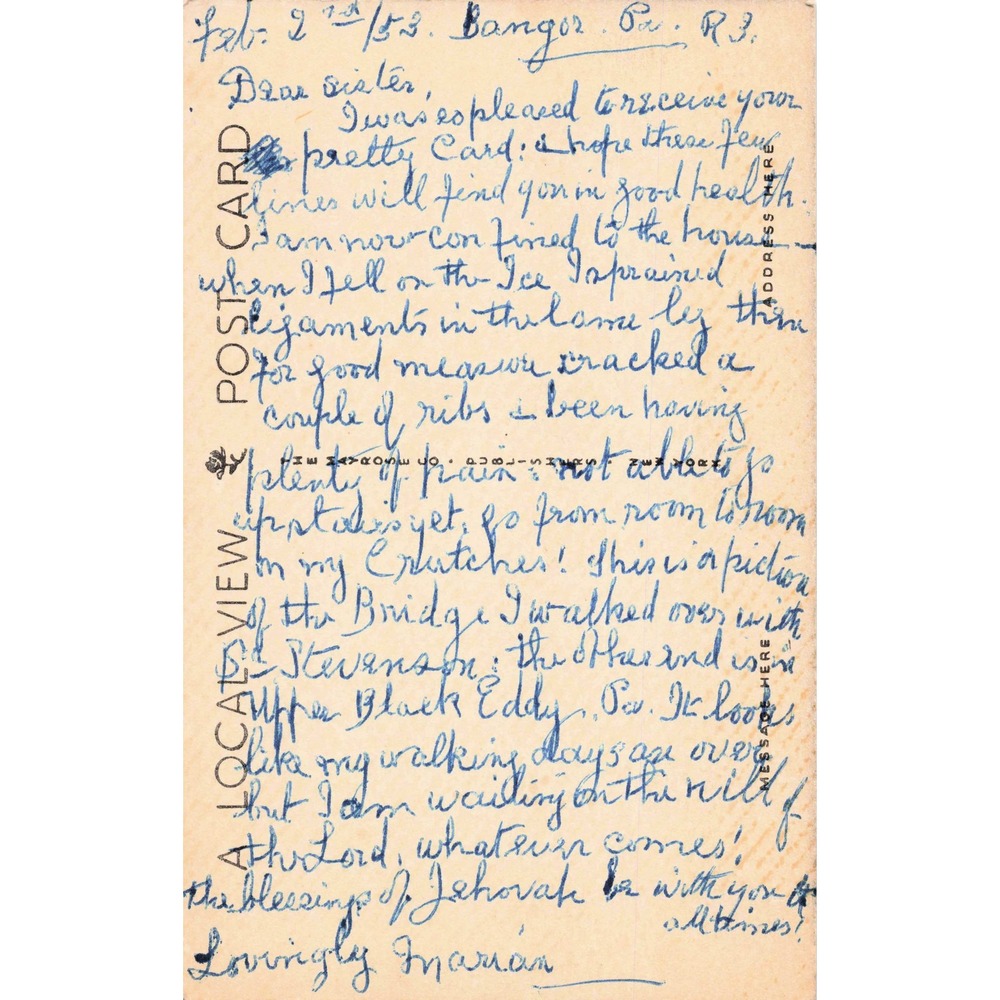 Feb. 2nd/53. Bangor. Pa. R3.
Dear Sister,
I was so pleased to receive your
pretty Card: & hope these few
lines will find you in good health.
I am now confined to the house—
when I fell on the Ice I sprained
ligaments in the lame leg then
for good measure cracked a
couple of ribs & been having
plenty of pain: not able to go
upstairs yet. go from room to room
on my Crutches! This is a picture
of the Bridge I walked over with
Stevenson: the other end is in
Upper Black Eddy, Pa. It looks
like my walking days are over
but I am waiting on the will of
the Lord, whatever comes!
the blessings of Jehovah be with you at
all times!
Lovingly Marian
A LOCAL VIEW POST CARD
THE MAYROSE CO. PUBLISHERS. NEW YORK
MESSAGE HERE
ADDRESS HERE